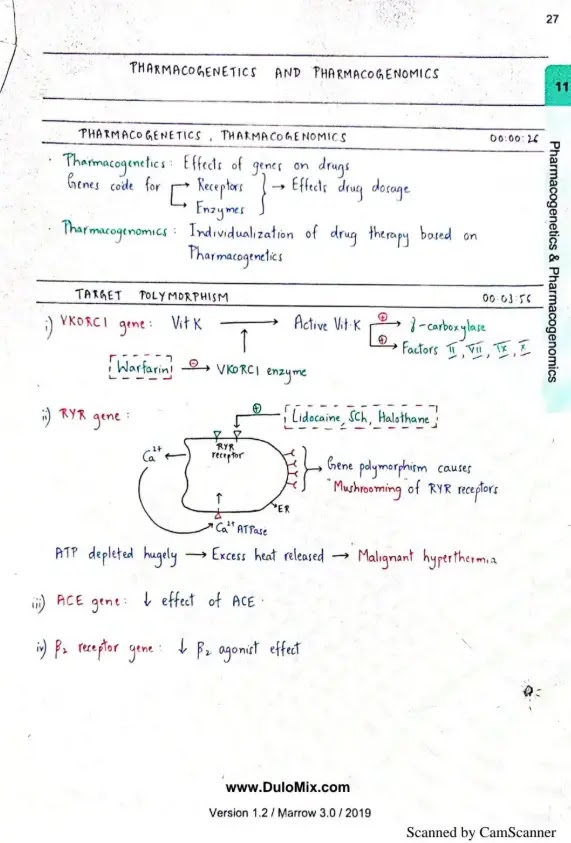 27
PHARMACOGENETICS AND PHARMACOGENOMICS
11
Pharmacogenetics & Pharmacogenomics
PHARMACOGENETICS , PHARMACOGENOMICS 00:00:26
· Pharmacogenetics : Effects of genes on drugs
Genes code for Receptors → Effects drug dosage
Enzymes
· Pharmacogenomics : Individualization of drug therapy based on
Pharmacogenetics
TARGET POLYMORPHISM 00:03:56
i) VKORC1 gene : Vit K → Active Vit K ⊕ γ-carboxylase
⊕ Factors II, VII, IX, X
Warfarin ⊖ → VKORC1 enzyme
ii) RYR gene :
⊕ Lidocaine, SCh, Halothane
RYR
receptor
Ca²⁺
Gene polymorphism causes
"Mushrooming" of RYR receptors
ER
Ca²⁺ ATPase
ATP depleted hugely → Excess heat released → Malignant hyperthermia
iii) ACE gene : ↓ effect of ACE ·
iv) β₂ receptor gene : ↓ β₂ agonist effect
www.DuloMix.com
Version 1.2 / Marrow 3.0 / 2019
Scanned by CamScanner